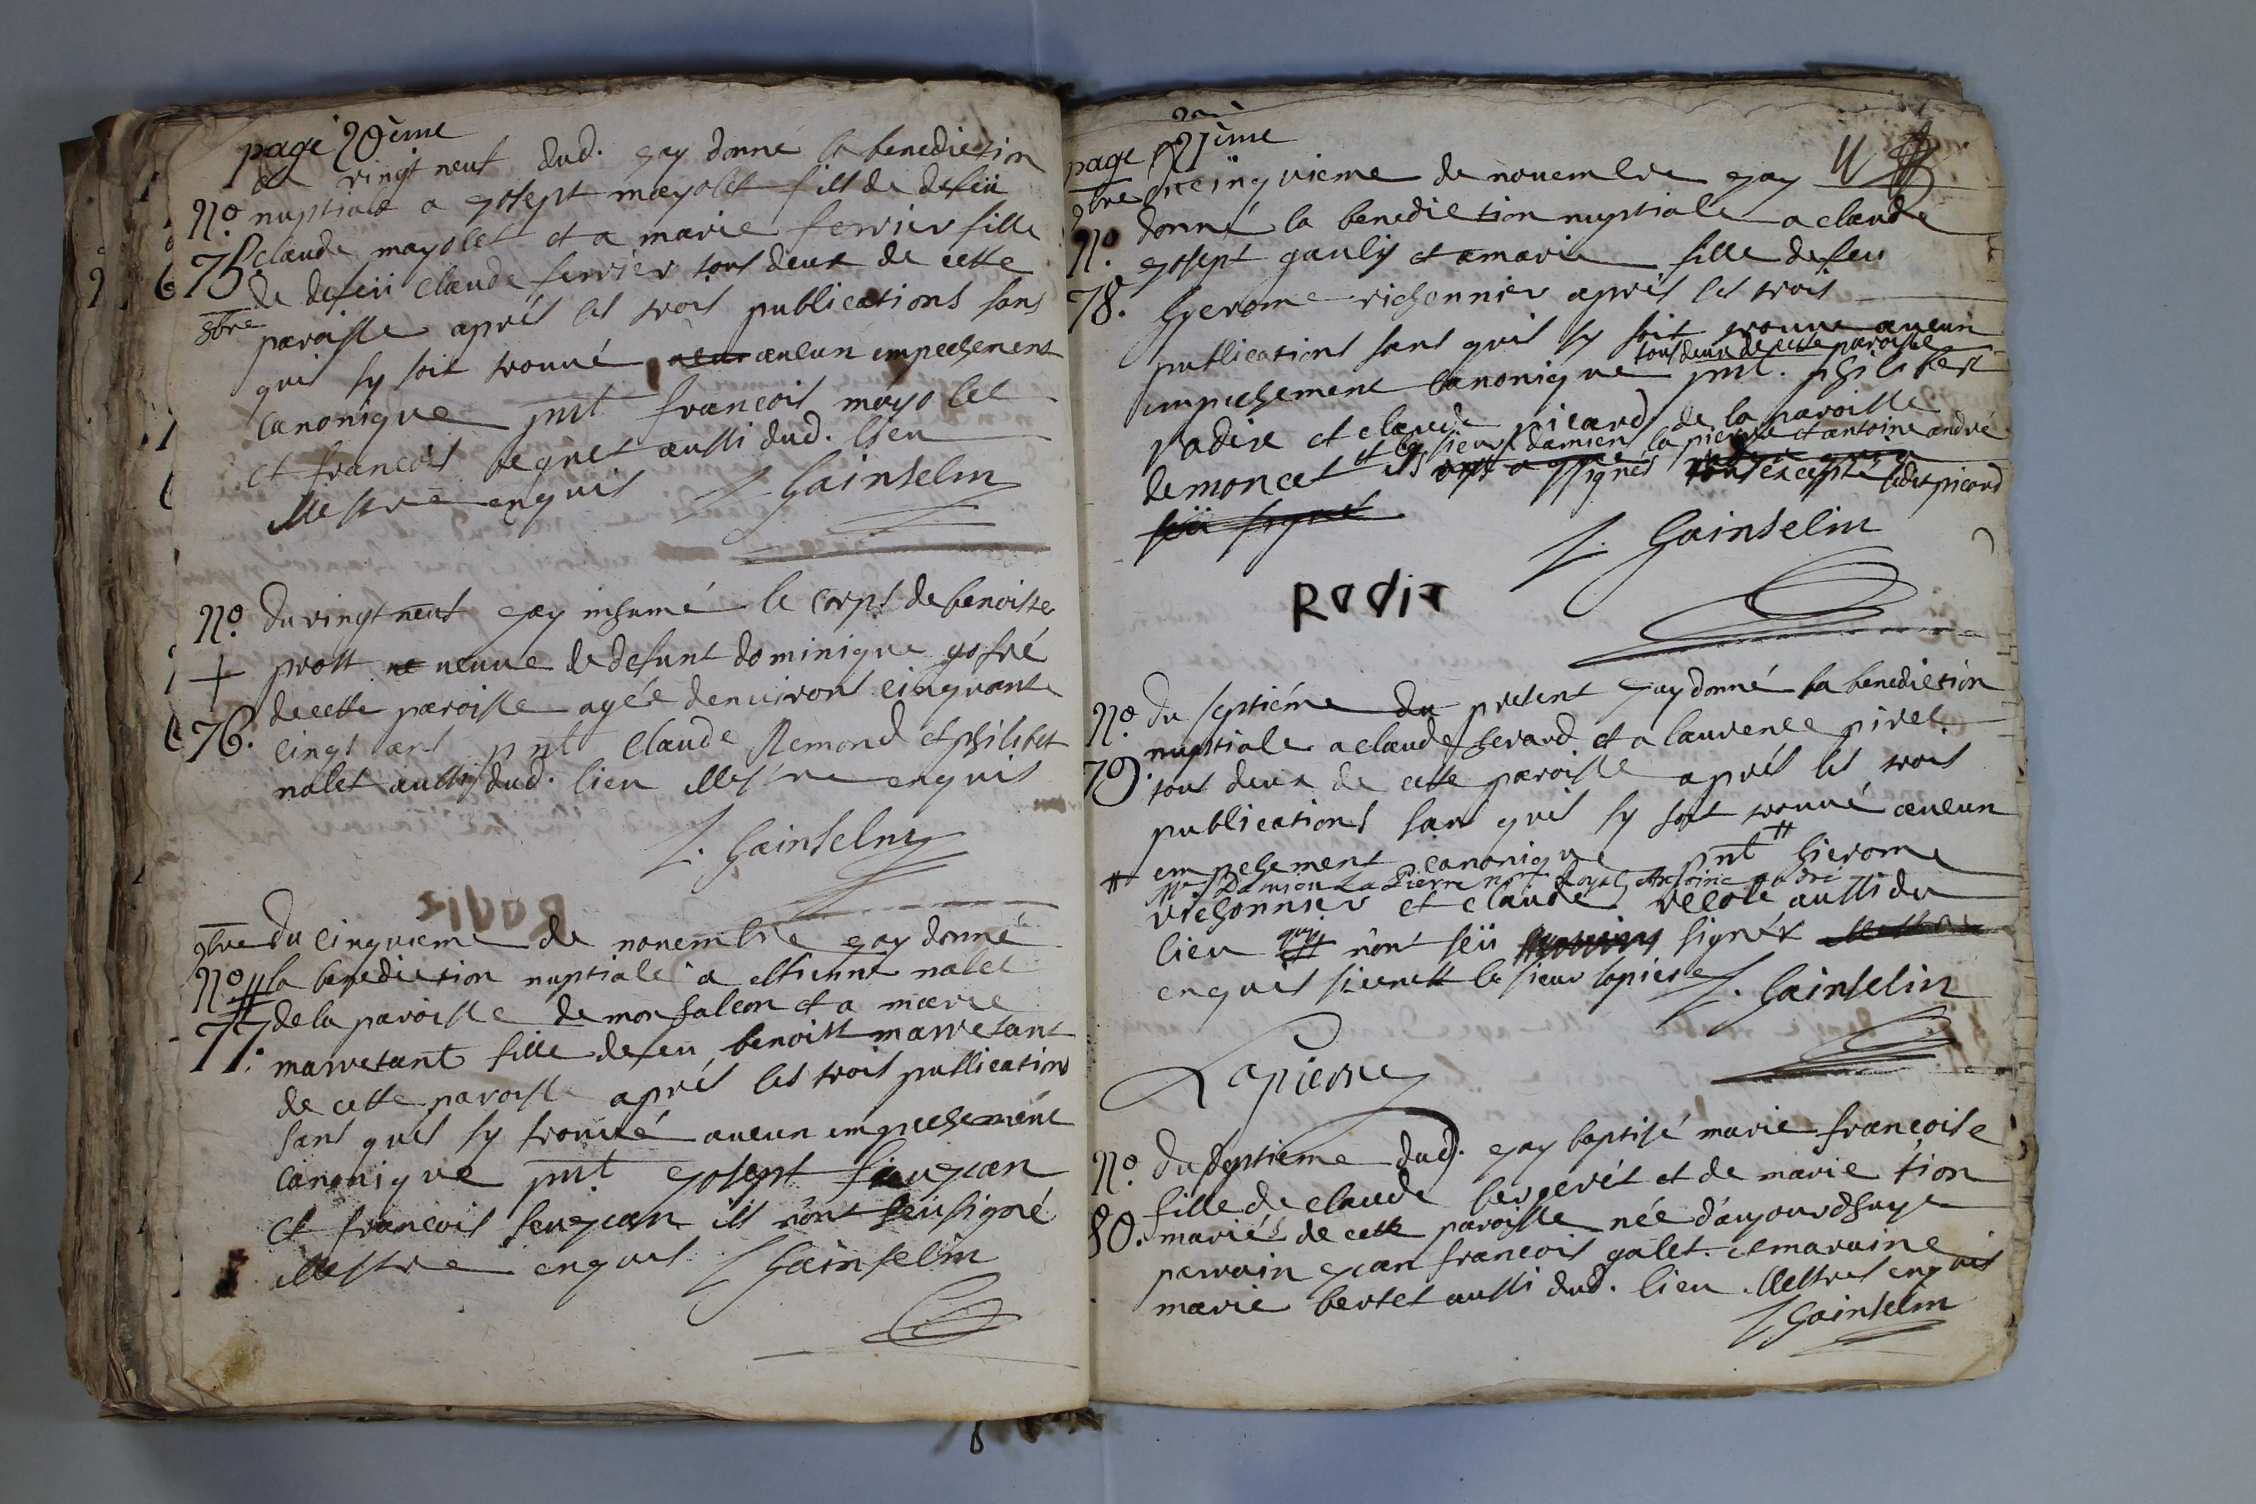 page 20ème
du vingt neuf dud. jay donné la benediction
No. nuptiale a joseph mayolet fils de defeü
75 claude mayolet et a marie ferrier fille
de defeü claude ferrier tous deux de cette
8bre paroisse aprés les trois publications sans
quil sy soit trouvé aucun empechement
canonique pnt francois mayolet
et francois begnet aussi dud. lieu
illestre enquis J. Gainselin
No. du vingt neuf jay inhumé le corps de benoiste
+ prost ve veuve de defunt dominique gofré
de cette paroisse agée denvirons cinquante
76. cinqt ans pnt Claude Remond et philibet
nalet aussy dud. lieu illestre enquis
J. Gainselin
9bre du cinquieme de novembre jay donné
No. la benediction nuptiale a estienne nalet
77. de la paroisse de monfalcon et a marie
marvetant fille de feu benoist marvetant
de cette paroisse aprés les trois publications
sans quil sy trouvé aucun empechement
canonique pnt joseph
et francois ils nont seü signé
illestre enquis J Gainselin
page 21ème
9bre du cinquieme de novembre jay
No. donné la benediction nuptiale a claude
joseph gauly et a marie fille de feu
78. hierome richonnier aprés les trois
publications sans quil sy soit trouvé aucun
tous deux de cette paroisse
empechement canonique pnt. philibet
radix et claude picard de la paroisse
et les sieurs damien la pierre et antoine andré
demoncet ils ont signés excepté ledit picard
seü signé
J. Gainselin
Radix
No. du septiéme du present jay donné la benediction
nuptiale a claude herard et a laurence pivet
79. tous deux de cette paroisse aprés les trois
publications sans quil sy soit trouvé aucun
empechement canonique pnt # hierome
# Me Damien La Pierre nore Royal, Antoine andré
richonnier et claude recole aussi du
lieu quy nont seü signér
enquis sienest le sieur lapiere J. Gainselin
Lapierre
No. du septieme dud. jay baptisé marie francoise
fille de claude bergerét et de marie tion
80. mariés de cette paroisse née daujourdhuye
parrain jean francois galet et maraine
marie bertet aussi dud. lieu. illestres enquis
J Gainselin